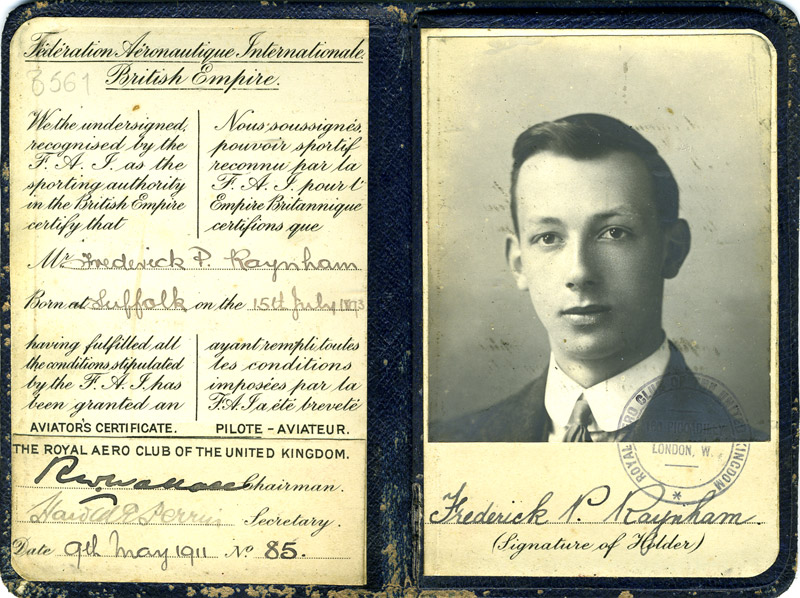 Fédération Aéronautique Internationale.
British Empire.
6561
We the undersigned,
recognised by the
F. A. I. as the
sporting authority
in the British Empire
certify that
Nous soussignés,
pouvoir sportif
reconnu par la
F. A. I. pour l'
Empire Britannique
certifions que
Mr Frederick P. Raynham
Born at Suffolk on the 15th July 1893
having fulfilled all
the conditions stipulated
by the F. A. I. has
been granted an
AVIATOR'S CERTIFICATE.
ayant rempli toutes
les conditions
imposées par la
F.A.I a été breveté
PILOTE - AVIATEUR.
THE ROYAL AERO CLUB OF THE UNITED KINGDOM.
Chairman.
Harold E Perrin Secretary.
Date 9th May 1911 No 85.
ROYAL AERO CLUB OF THE UNITED KINGDOM
LONDON, W.
Frederick P. Raynham.
(Signature of Holder)